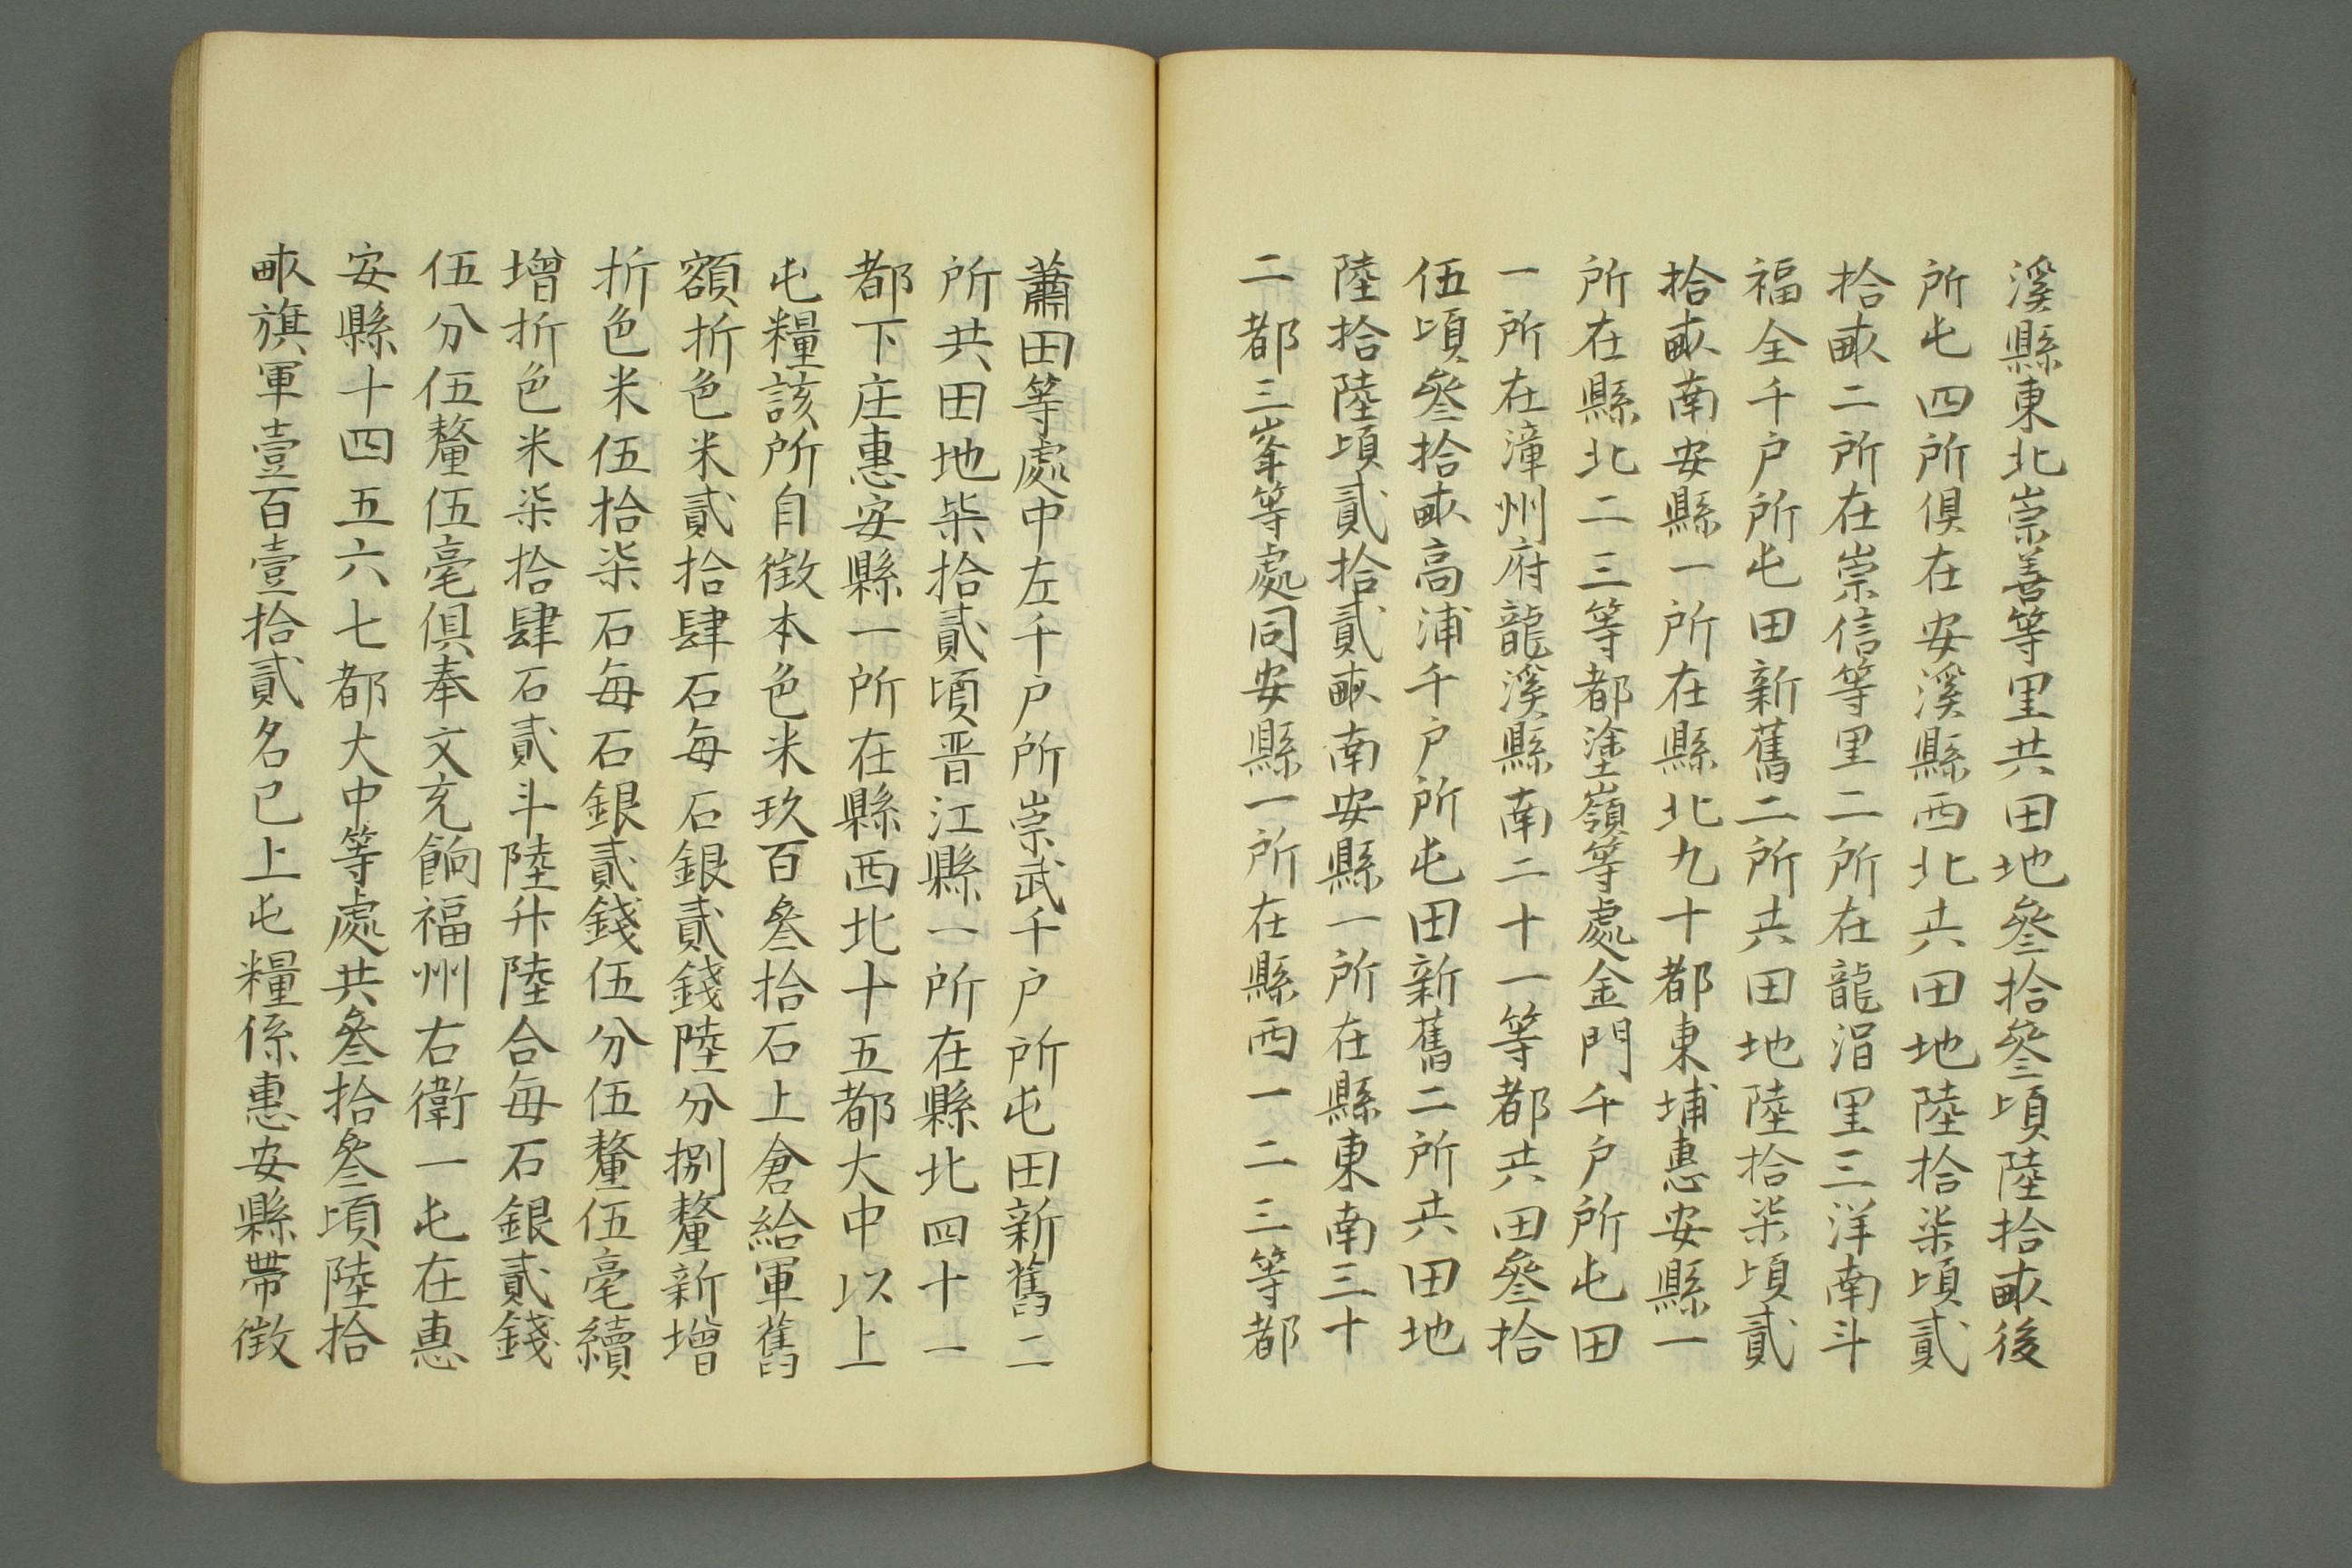 溪縣東北崇善等里共田地叄拾叄頃陸拾畝後
所屯四所俱在安溪縣西北共田地陸拾柒頃貳
拾畝二所在崇信等里二所在龍涓里三洋南斗
福全千户所屯田新舊二所共田地陸拾柒頃貳
拾畝南安縣一所在縣北九十都東埔惠安縣一
所在縣北二三等都塗嶺等處金門千户所屯田
一所在漳州府龍溪縣南二十一等都共田叄拾
伍頃叄拾畝高浦千户所屯田新舊二所共田地
陸拾陸頃貳拾貳畝南安縣一所在縣東南三十
二都三峯等處同安縣一所在縣西一二三等都
蕭田等處中左千户所崇武千户所屯田新舊二
所共田地柒拾貳頃晋江縣一所在縣北四十一
都下庄惠安縣一所在縣西北十五都大中以上
屯糧該所自徴本色米玖百叄拾石上倉給軍舊
額折色米貳拾肆石每石銀貳錢陸分捌釐新增
折色米伍拾柒石每石銀貳錢伍分伍釐伍毫續
增折色米柒拾肆石貳斗陸升陸合每石銀貳錢
伍分伍釐伍毫俱奉文充餉福州右衛一屯在惠
安縣十四五六七都大中等處共叄拾叄頃陸拾
畝旗軍壹百壹拾貳名已上屯糧係惠安縣帶徴